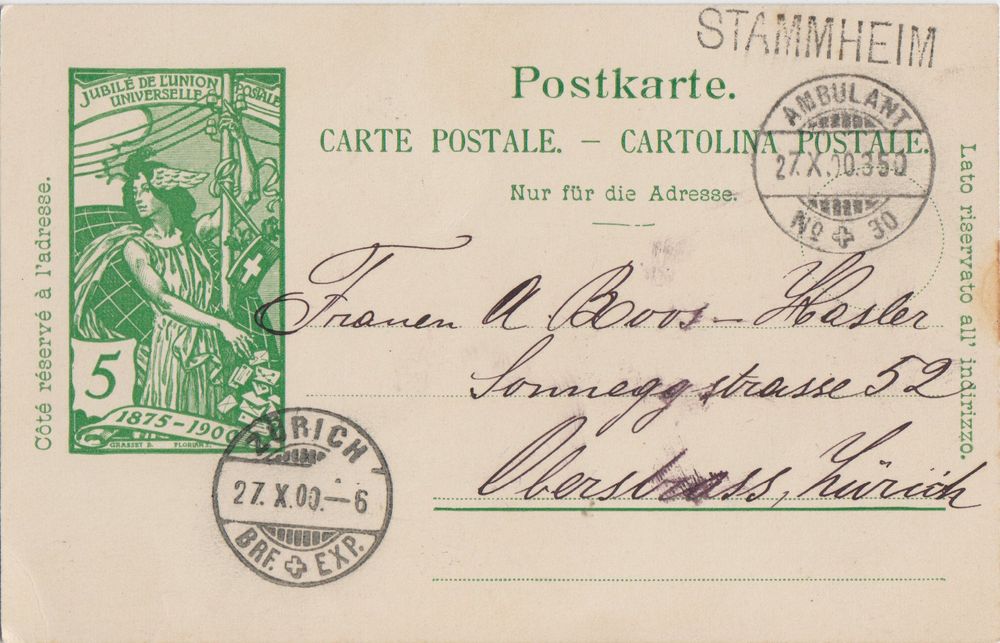 STAMMHEIM
Postkarte.
CARTE POSTALE. – CARTOLINA POSTALE.
Nur für die Adresse.
AMBULANT
27.X.00.350
No 30
JUBILÉ DE L'UNION POSTALE
UNIVERSELLE
5
1875-1900
GRASSET D. FLORIAN
Côté réservé à l'adresse.
Lato riservato all' indirizzo.
Frauen A Boos-Hasler
Sonneggstrasse 52
Oberstrass, Zürich
ZÜRICH
27.X.00.–6
BRF. EXP.